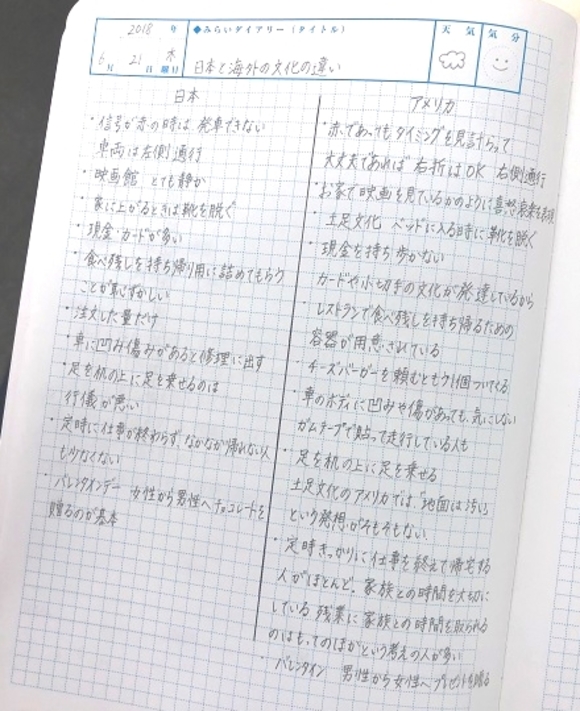 2018 年
◆みらいダイアリー（タイトル）
天気
気分
6月 21日 木曜日
日本と海外の文化の違い
日本
・信号が赤の時は 発車できない
車両は左側通行
・映画館 とても静か
・家に上がるときは靴を脱ぐ
・現金・カードが多い
・食べ残しを持ち帰り用に詰めてもらう
ことが恥ずかしい
・注文した量だけ
・車に凹み傷みがあると修理に出す
・足を机の上に足を乗せるのは
行儀が悪い
・定時に仕事が終わらず、なかなか帰れない人
も少なくない
・バレンタインデー 女性から男性へチョコレートを
贈るのが基本
アメリカ
・赤であってもタイミングを見計らって
大丈夫であれば 右折はOK 右側通行
・お家で映画を見ているかのように喜怒哀楽を表現
・土足文化 ベッドに入る時に靴を脱ぐ
・現金を持ち歩かない
カードや小切手の文化が発達しているから
・レストランで食べ残しを持ち帰るための
容器が用意されている
・チーズバーガーを頼むともう1個ついてくる
・車のボディに凹みや傷があっても、気にしない
ガムテープで貼って走行している人も
・足を机の上に足を乗せる
土足文化のアメリカでは、「地面は汚い」
という発想がそもそもない。
・定時きっかりに仕事を終えて帰宅する
人がほとんど。家族との時間を大切に
している 残業に家族との時間を取られる
のはもってのほかという考えの人が多い
・バレンタイン 男性から女性へプレゼントを贈る